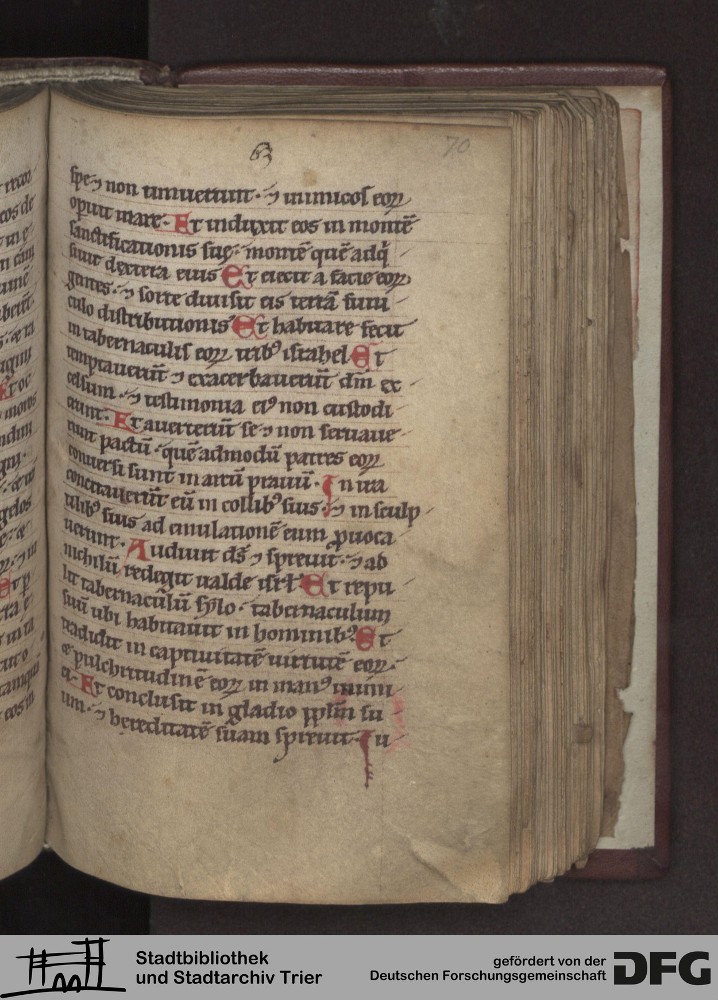 63
70
spe ⁊ non timuerunt · ⁊ inimicos eoꝝ
operuit mare · Et induxit eos in montē
sanctificationis suę · montē quē adq̇
siuit dextera eius Et eiecit a facie eoꝝ
gentes · ⁊ sorte diuisit eis terrā funi
culo distributionis Et habitare fecit
in tabernaculis eoꝝ tribꝰ israhel Et
temptauerūt ⁊ exacerbauerūt dm̄ ex
celsum · ⁊ testimonia eiꝰ non custodi
erunt · Et auerterūt se ⁊ non seruaue
runt pactū · quē admodū patres eoꝝ
conuersi sunt in arcū prauū · In ira
concitauerūt eū in collibꝰ suis · ⁊ in sculp
tilibꝰ suis ad emulationē eum ꝓuoca
uerunt · Audiuit ds̄ ⁊ spreuit · ⁊ ad
nichilū redegit ualde isrł Et repu
lit tabernaculū sylo · tabernaculum
suū ubi habitauit in hominibꝰ Et
tradidit in captiuitatē uirtutē eoꝝ ·
⁊ pulchritudinē eoꝝ in manꝰ inimi
ci · Et conclusit in gladio pplm̄ su
um · ⁊ hereditatē suam spreuit · Iu
Stadtbibliothek
und Stadtarchiv Trier
gefördert von der
Deutschen Forschungsgemeinschaft
DFG